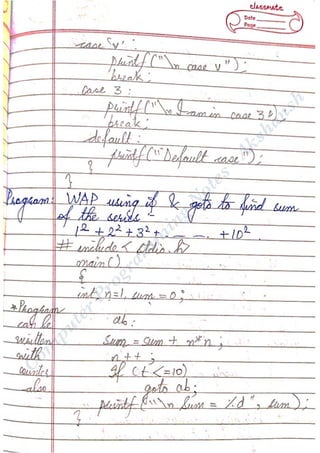 classmate
Date
Page
case 'v' :
printf ("\n case v") ;
break ;
case 3 :
printf ("\n I am in case 3") ;
break ;
default :
printf ("Default case") ;
}
}
Program: WAP using if & goto to find sum
of the series -
1² + 2² + 3² + - - - - - +10².
# include < stdio.h>
main()
{
int n=1, sum = 0 ;
ab :
sum = sum + n*n ;
n++ ;
if (t <=10)
goto ab ;
printf ("\n Sum = %d", sum) ;
}
*Program
can be
written
with
counter
also
Computer Programming Notes Akshansh